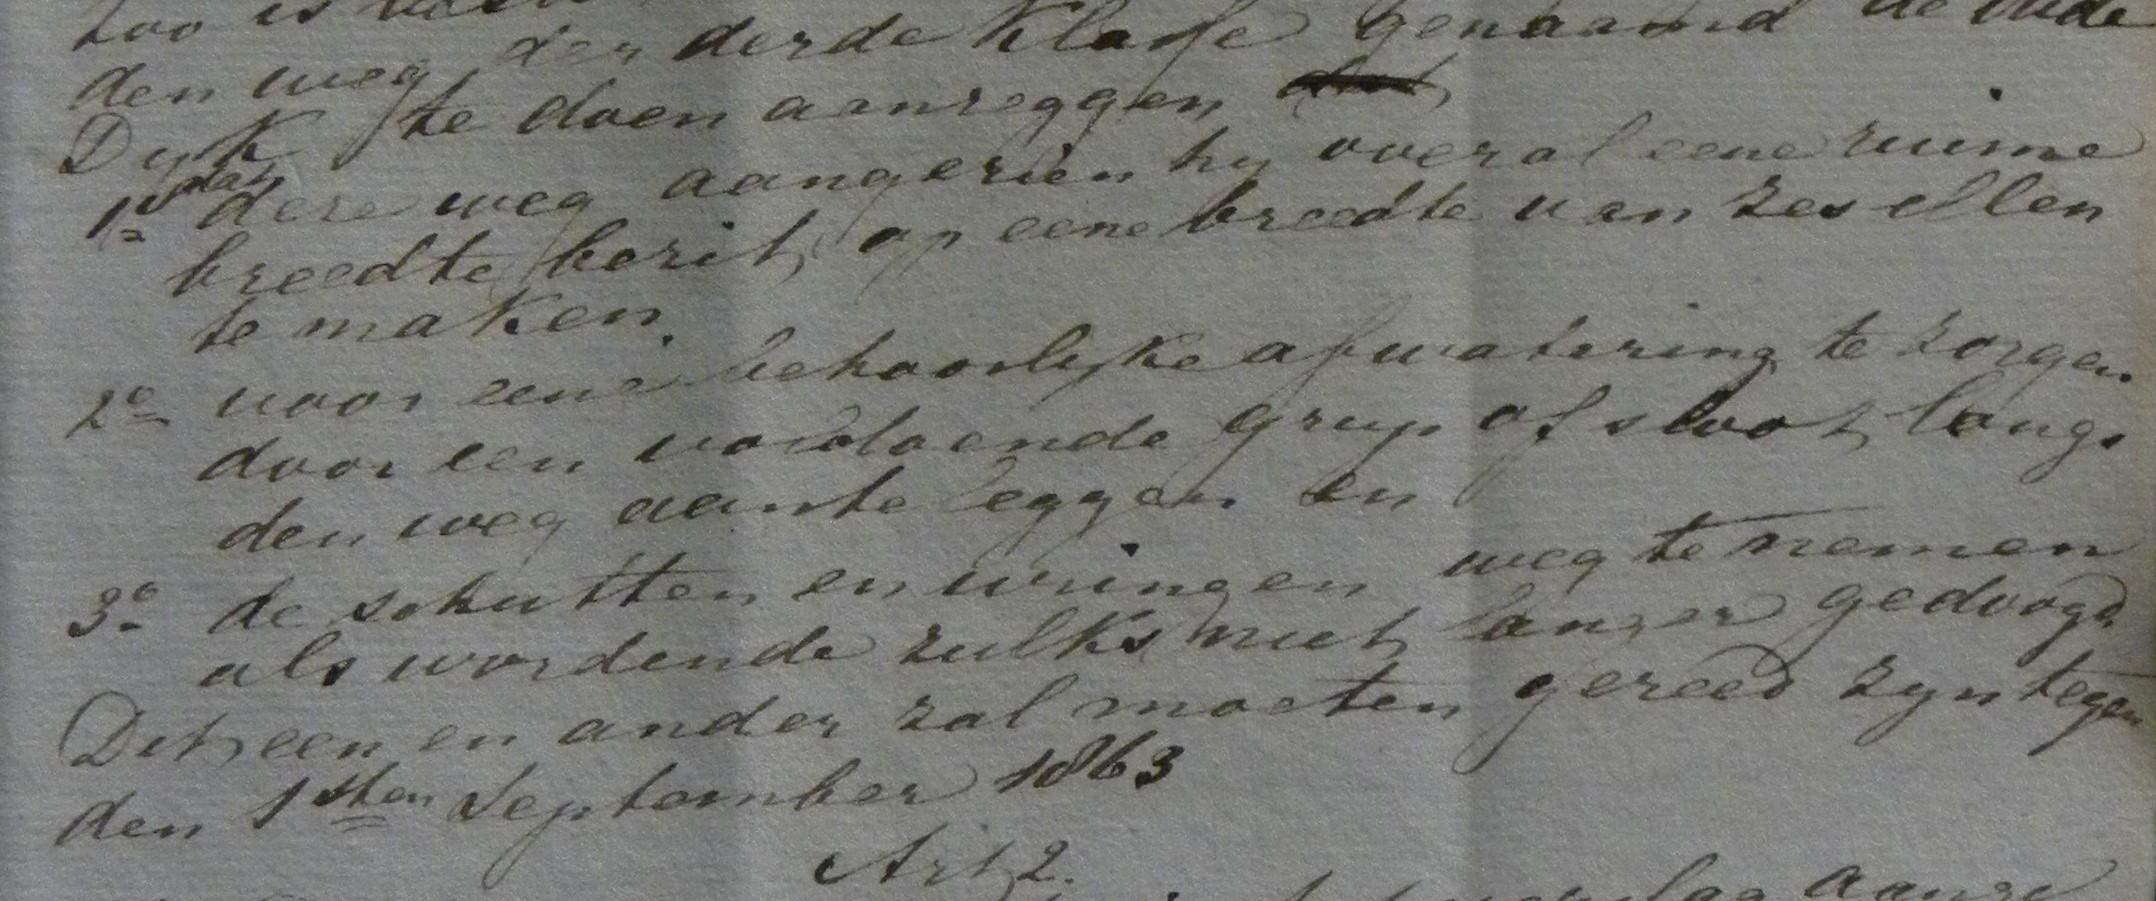 zoo is
den weg der derde Klasse genaamd de oude
Dyk te doen aanzeggen
1º dat deze weg aangezien hy overal eene ruime
breedte bezit, op eene breedte van zes ellen
te maken.
2º voor eene behoorlyke afwatering te zorgen
door een voldoende grup of sloot langs
den weg aante leggen en
3º de schutten en wringen weg te nemen
als wordende zulks niet langer gedoogd
Dit een en ander zal moeten gereed zyn tegen
den 1sten September 1863
Art 2.